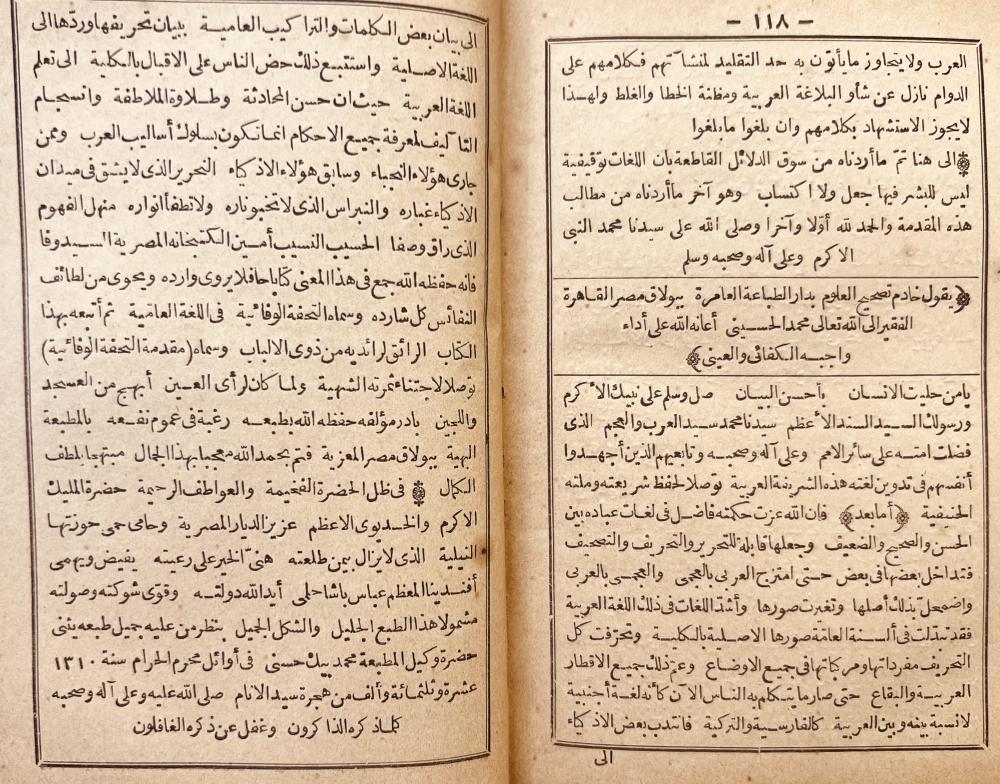 — ١١٨ —
العرب ولا يتجاوز ما يأتون به حد التقليد لمنشآتهم فكلامهم على
الدوام نازل عن شأو البلاغة العربية ومظنة الخطا والغلط ولهذا
لا يجوز الاستشهاد بكلامهم وان بلغوا ما بلغوا
الى هنا تمّ ما أردناه من سوق الدلائل القاطعة بان اللغات توقيفية
ليس للبشر فيها جعل ولا اكتساب وهو آخر ما أردناه من مطالب
هذه المقدمة والحمد لله أوّلا وآخرا وصلى الله على سيدنا محمد النبى
الاكرم وعلى آله وصحبه وسلم
يقول خادم تصحيح العلوم بدار الطباعة العامرة ببولاق مصر القاهرة
الفقير الى الله تعالى محمد الحسينى أعانه الله على أداء
واجبه الكفائى والعينى
يا من حليت الانسان بأحسن البيان صل وسلم على نبيك الاكرم
ورسولك السيد السند الأعظم سيدنا محمد سيد العرب والعجم الذى
فضلت امته على سائر الامم وعلى آله وصحبه وتابعيهم الذين أجهدوا
أنفسهم فى تدوين لغته هذه الشريفة العربية توصلا لحفظ شريعته وملته
الحنيفية (أما بعد) فان الله عزت حكمته فاضل فى لغات عباده بين
الحسن والصحيح والضعيف وجعلها قابلة للتحرير والتحريف والتصحيف
فتداخل بعضها فى بعض حتى امتزج العربى بالعجمى والعجمى بالعربى
واضمحل بذلك أصلها وتغيرت صورها وأشدّ اللغات فى ذلك اللغة العربية
فقد تبدّلت فى ألسنة العامّة صورها الاصلية بالكلية وتحرّفت كل
التحريف مفرداتها ومركباتها فى جميع الاوضاع وعم ذلك جميع الاقطار
العربية والبقاع حتى صار ما يتكلم به الناس الآن كأنه لغة أجنبية
لا نسبة بينه وبين العربية كالفارسية والتركية فانتدب بعض الاذكياء
الى
الى بيان بعض الكلمات والتراكيب العامية ببيان تحريفها وردّها الى
اللغة الاصلية واستتبع ذلك حض الناس على الاقبال بالكلية الى تعلم
اللغة العربية حيث ان حسن المحادثة وطلاوة الملاطفة وانسجام
التآليف لمعرفة جميع الاحكام انما تكون بسلوك أساليب العرب وممن
جارى هؤلاء النجباء وسابق هؤلاء الاذكياء النحرير الذى لا يشق فى ميدان
الاذكياء غباره والنبراس الذى لا تخبو ناره ولا تطفأ أنواره منهل الفهوم
الذى راق وصفا الحسيب النسيب أمين الكتبخانه المصرية السيد وفا
فانه حفظه الله جمع فى هذا المعنى كتابا حافلا يروى وارده ويحوى من لطائف
النفائس كل شارده وسماه التحفة الوفائية فى اللغة العامية ثم أتبعه بهذا
الكتاب الرائق لرائديه من ذوى الالباب وسماه (مقدمة التحفة الوفائية)
توصلا لاجتناء ثمرته الشهية ولما كان لرأى العين أبهج من العسجد
واللجين بادر مؤلفه حفظه الله بطبعه رغبة فى عموم نفعه بالمطبعة
البهية ببولاق مصر المعزية فتم بحمد الله معجبا بهذا الجمال مبتهجا بلطف
الكمال فى ظل الحضرة الفخيمة والعواطف الرحيمة حضرة المليك
الاكرم والخديوى الاعظم عزيز الديار المصرية وحامى حمى حوزتها
النيلية الذى لا يزال بيمن طلعته هنىّ الخير على رعيته يفيض ويهمى
أفندينا المعظم عباس باشا حلمى أيد الله دولته وقوى شوكته وصولته
مشمولا هذا الطبع الجليل والشكل الجميل بنظر من عليه جميل طبعه يثنى
حضرة وكيل المطبعة محمد بيك حسنى فى أوائل محرم الحرام سنة ١٣١٠
عشرة وثلثمائة وألف من هجرة سيد الانام صلى الله عليه وعلى آله وصحبه
كلما ذكره الذاكرون وغفل عن ذكره الغافلون